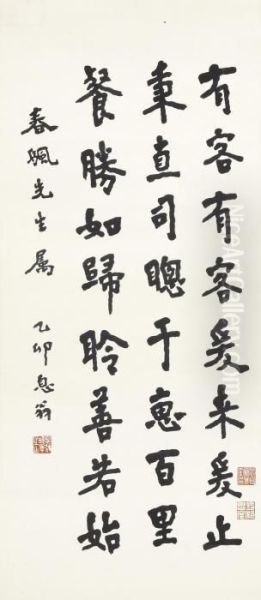 有客有客爰來爰止
秉直司聰于惠百里
餐勝如歸聆善若始
春先生属 乙卯息翁
NiceArtGallery.com